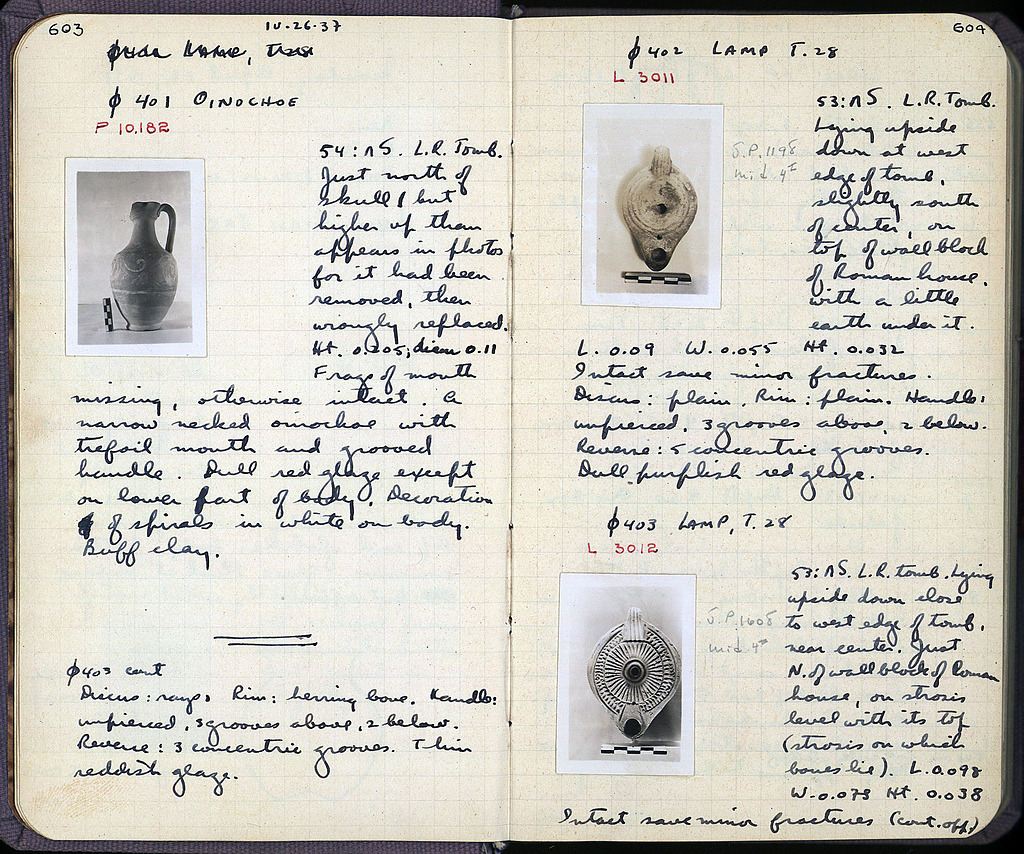 603
IV-26-37
ϕ 401 OINOCHOE
P 10,182
54:ΛS. L.R. Tomb.
Just north of
skull 1 but
higher up than
appears in photos
for it had been
removed, then
wrongly replaced.
Ht. 0.205; diam 0.11
Frags of mouth
missing, otherwise intact. A
narrow necked oinochoe with
trefoil mouth and grooved
handle. Dull red glaze except
on lower part of body. Decoration
of spirals in white on body.
Buff clay.
ϕ403 cont
Discus: rays; Rim: herring bone. Handle:
unpierced, 3 grooves above, 2 below.
Reverse: 3 concentric grooves. Thin
reddish glaze.
604
ϕ 402 LAMP T. 28
L 3011
53:ΛS. L.R. Tomb.
Lying upside
down at west
edge of tomb,
slightly south
of center, on
top of wall block
of Roman house,
with a little
earth under it.
mid 4
L. 0.09 W. 0.055 Ht. 0.032
Intact save minor fractures.
Discus: plain. Rim: plain. Handle:
unpierced, 3 grooves above, 2 below.
Reverse: 5 concentric grooves.
Dull purplish red glaze.
ϕ403 LAMP, T. 28
L 3012
53:ΛS. L.R. tomb. Lying
upside down close
to west edge of tomb,
near center. Just
N. of wall block of Roman
house, on strosis
level with its top
(strosis on which
bones lie). L. 0.098
W. 0.073 Ht. 0.038
mid 4
Intact save minor fractures (cont. opp.)